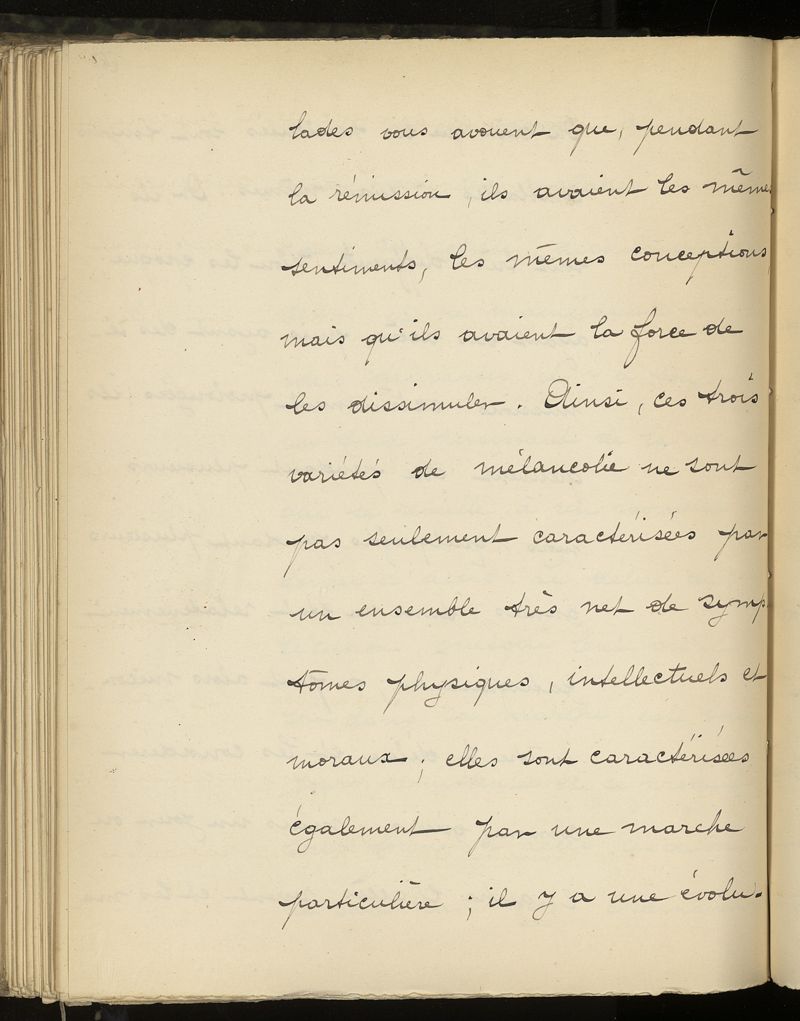 lades vous avouent que, pendant
la rémission, ils avaient les mêmes
sentiments, les mêmes conceptions,
mais qu'ils avaient la force de
les dissimuler. Ainsi, ces trois
variétés de mélancolie ne sont
pas seulement caractérisées par
un ensemble très net de symp
tômes physiques, intellectuels et
moraux ; elles sont caractérisées
également par une marche
particulière ; il y a une évolu-